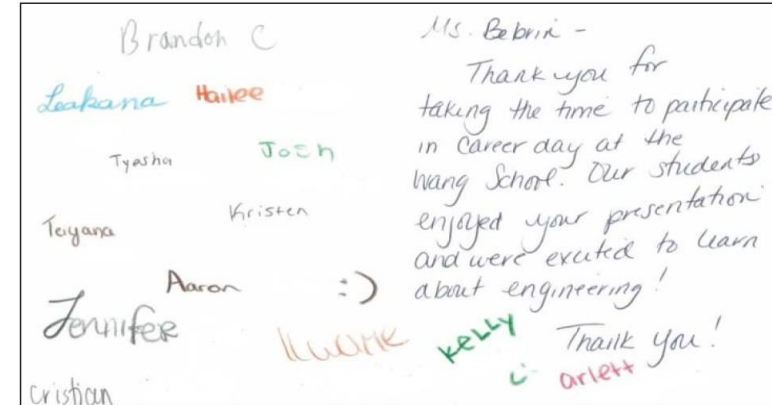 Brandon C
Leakana Hailee
Tyesha Josh
Kristen
Tayana
Aaron :)
Jennifer
Kelly
arlett
Cristian
Ms. Bebrin -
Thank you for
taking the time to participate
in Career day at the
Wang School. Our students
enjoyed your presentation
and were excited to learn
about engineering!
Thank you!